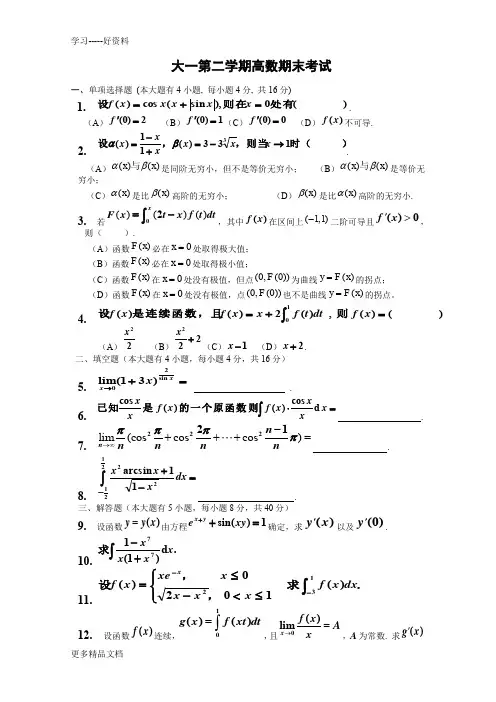 学习-----好资料
大一第二学期高数期末考试
一、单项选择题 (本大题有4小题, 每小题4分, 共16分)
1. 设f(x)=cos x(x+|sin x|), 则在x=0处有( ).
(A) f′(0)=2 (B) f′(0)=1 (C) f′(0)=0 (D) f(x)不可导.
2. 设α(x)=(1−x)/(1+x), β(x)=3−3∛x, 则当x→1时( ).
(A) α(x)与β(x)是同阶无穷小，但不是等价无穷小； (B) α(x)与β(x)是等价无
穷小；
(C) α(x)是比β(x)高阶的无穷小； (D) β(x)是比α(x)高阶的无穷小.
3. 若F(x)=∫₀ˣ(2t−x)f(t)dt，其中f(x)在区间上(−1,1)二阶可导且f′(x)>0，
则( ).
(A) 函数F(x)必在x=0处取得极大值；
(B) 函数F(x)必在x=0处取得极小值；
(C) 函数F(x)在x=0处没有极值，但点(0,F(0))为曲线y=F(x)的拐点；
(D) 函数F(x)在x=0处没有极值，点(0,F(0))也不是曲线y=F(x)的拐点。
4. 设f(x)是连续函数，且f(x)=x+2∫₀¹f(t)dt, 则f(x)=( )
(A) x²/2 (B) x²/2+2 (C) x−1 (D) x+2.
二、填空题 (本大题有4小题，每小题4分，共16分)
5. lim(x→0)(1+3x)^(2/sin x)= .
6. 已知cos x/x是f(x)的一个原函数, 则∫f(x)·cos x/x dx= .
7. lim(n→∞)π/n(cos²π/n+cos²2π/n+⋯+cos²(n−1)/n π)= .
8. ∫_(−1/2)^(1/2) (x²arcsin x+1)/√(1−x²) dx= .
三、解答题 (本大题有5小题，每小题8分，共40分)
9. 设函数y=y(x)由方程e^(x+y)+sin(xy)=1确定，求y′(x)以及y′(0).
10. 求∫(1−x⁷)/(x(1+x⁷))dx.
11. 设f(x)={xe^(−x), x≤0; √(2x−x²), 0<x≤1 求∫_(−3)^1 f(x)dx.
12. 设函数f(x)连续，g(x)=∫₀¹f(xt)dt，且lim(x→0)f(x)/x=A，A为常数. 求g′(x)
更多精品文档